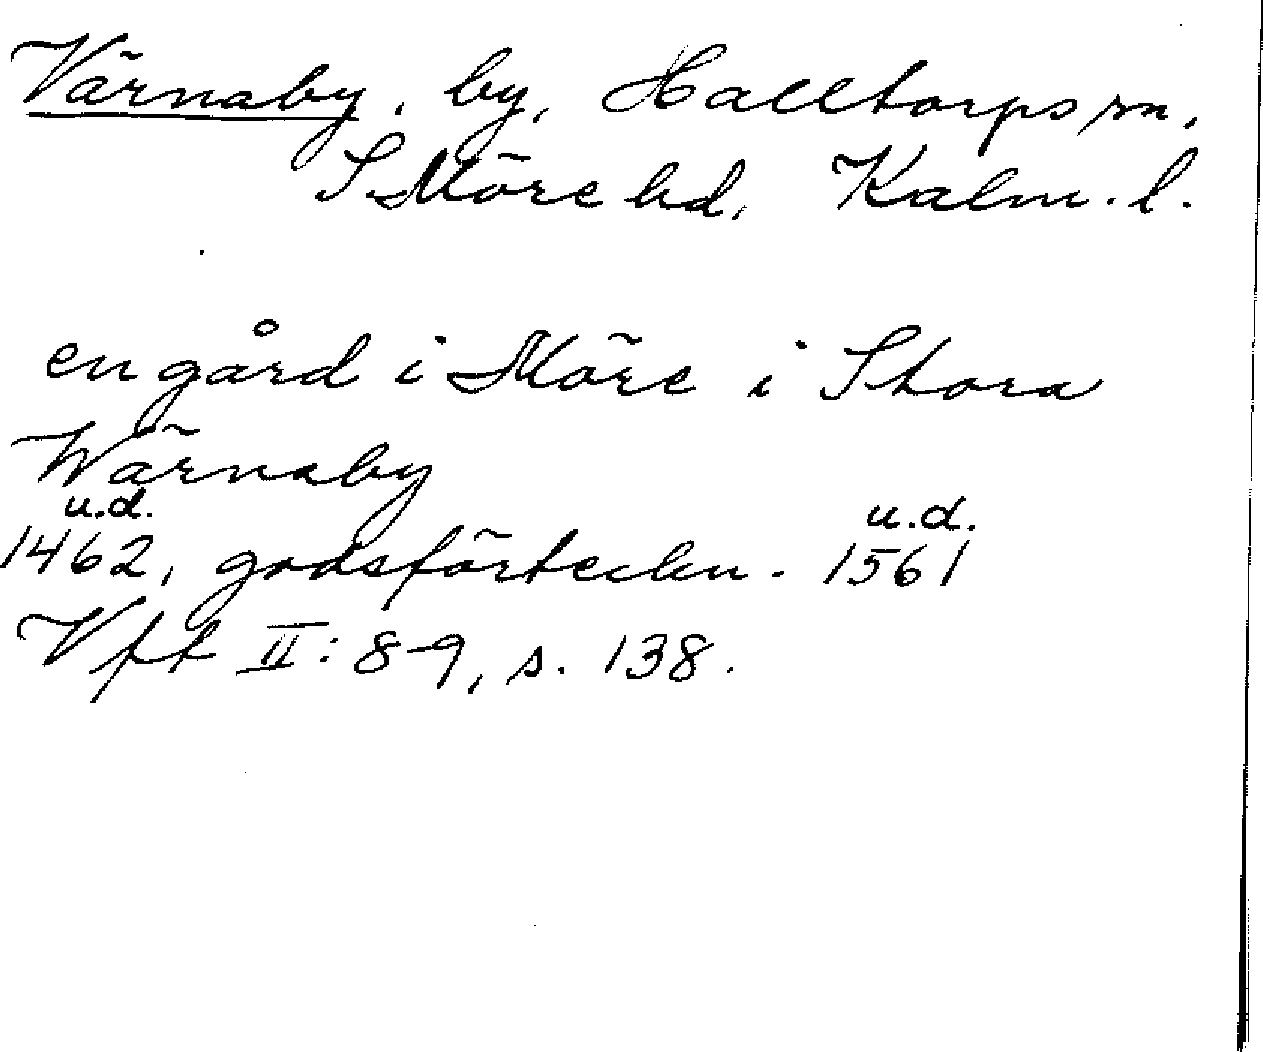 Värnaby, by, Halltorps sn,
S Möre hd, Kalm. l.
en gård i Möre i Stora
Wärnaby
u.d. u.d.
1462, godsförteckn. 1561
Vft II: 8-9, s. 138.